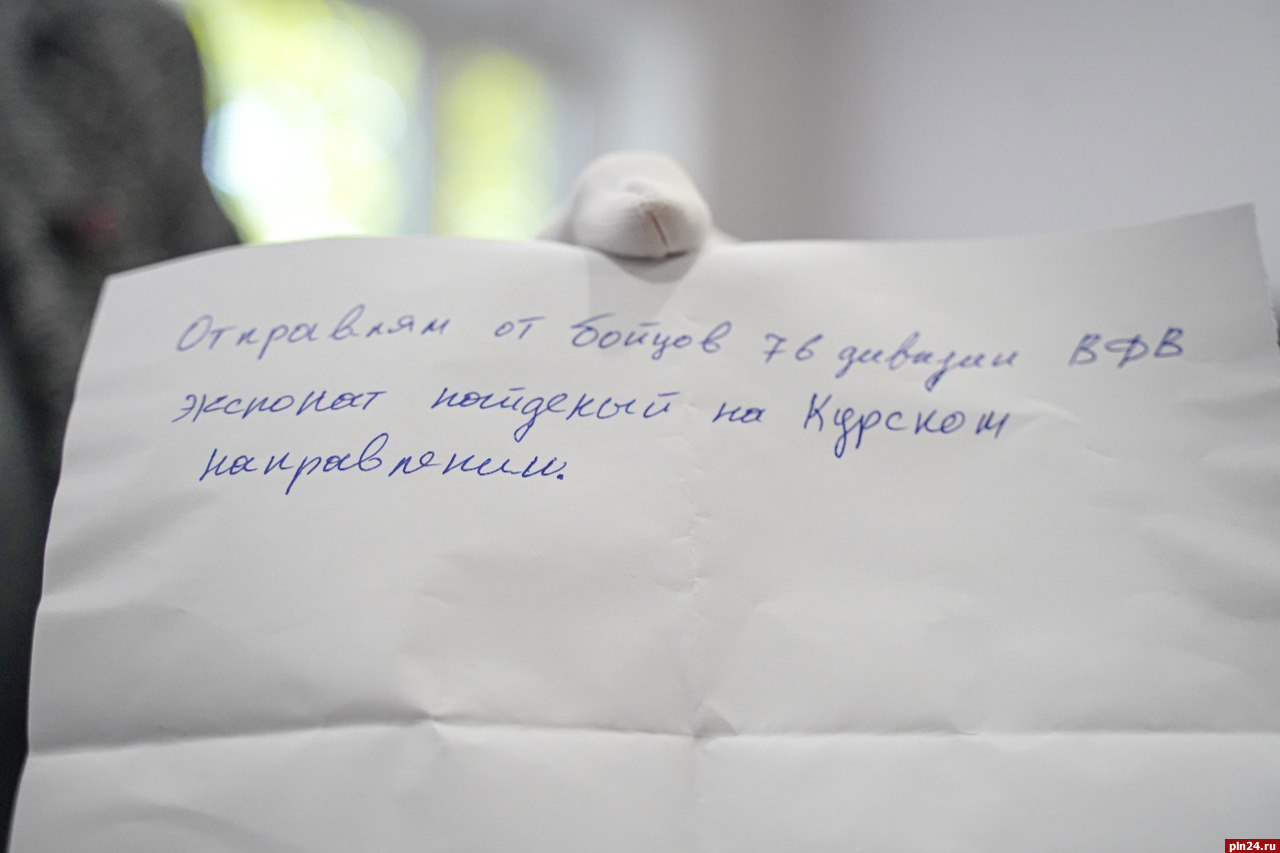 Отправлям от бойцов 76 дивизии ВДВ
экспонат найденый на Курском
направлении.
pln24.ru